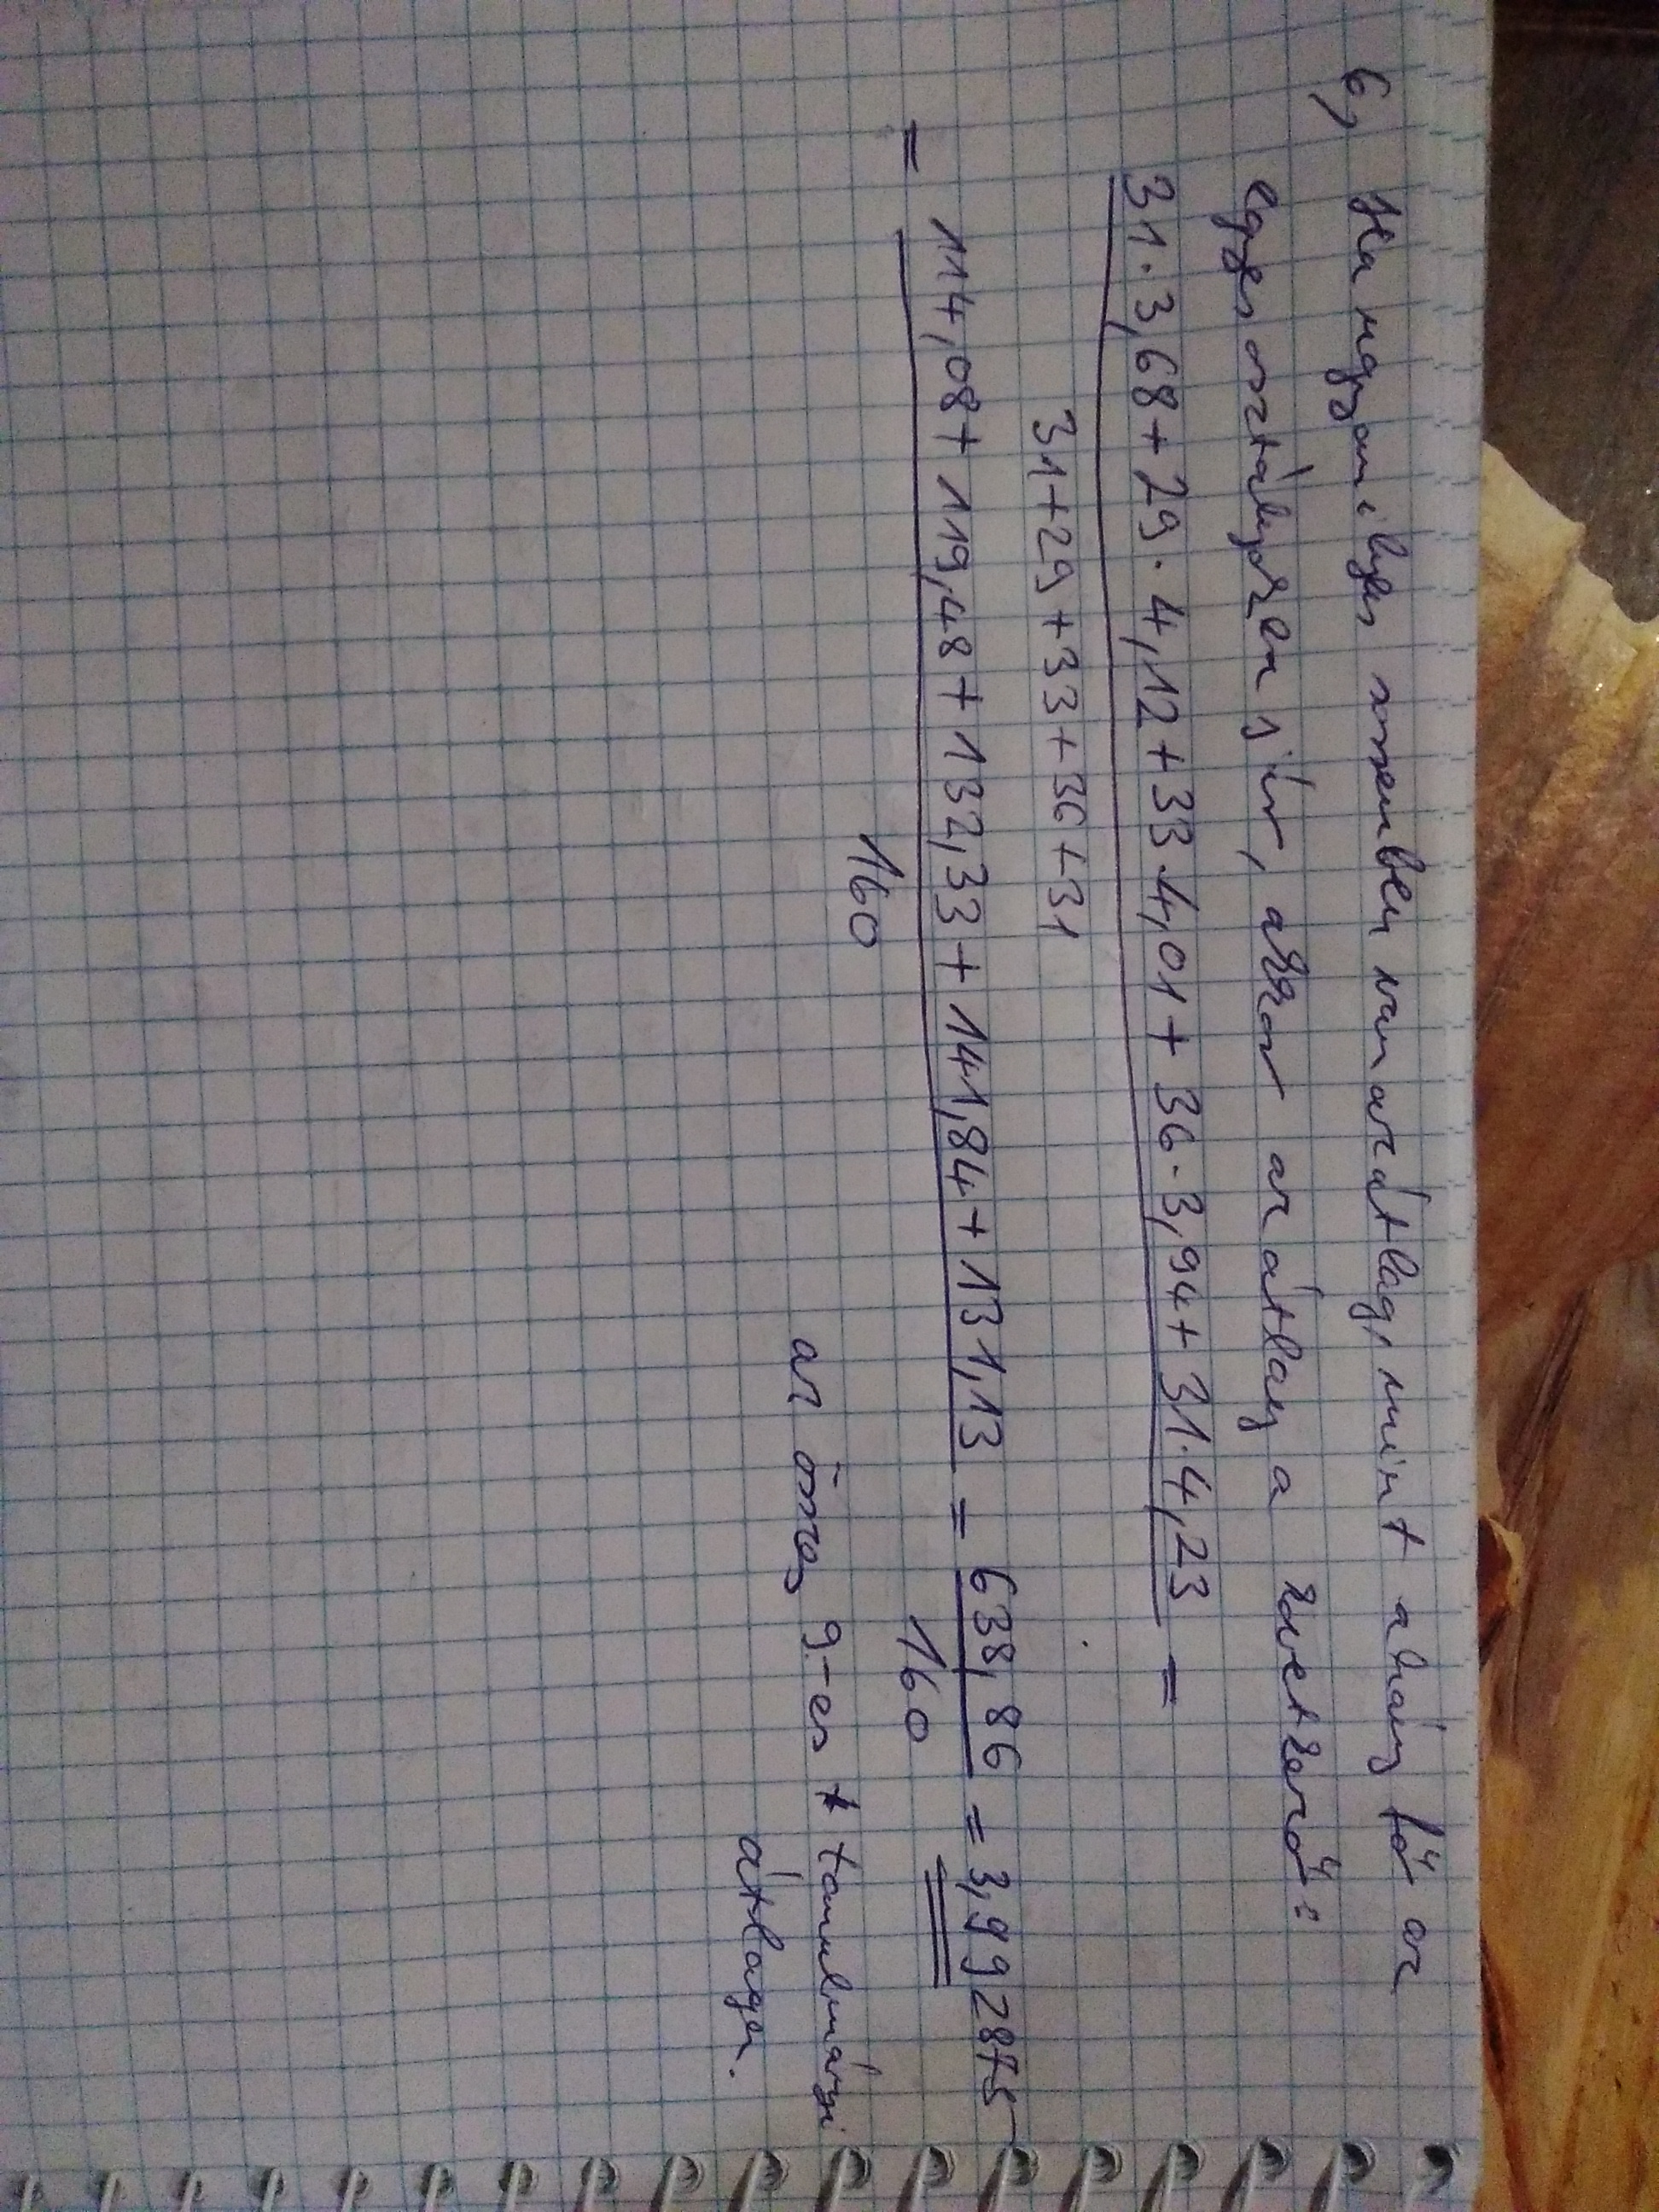 6, Ha ugyanilyen szemben van az átlag, mint ahány fő az
egyes osztályokban jár, akkor az átlag a következő:
31·3,68+29·4,12+33·4,01+36·3,94+31·4,23 =
31+29+33+36+31
= 114,08+119,48+132,33+141,84+131,13 = 638,86 = 3,992875
160 160
az összes 9.-es tanulmányi
átlaga.